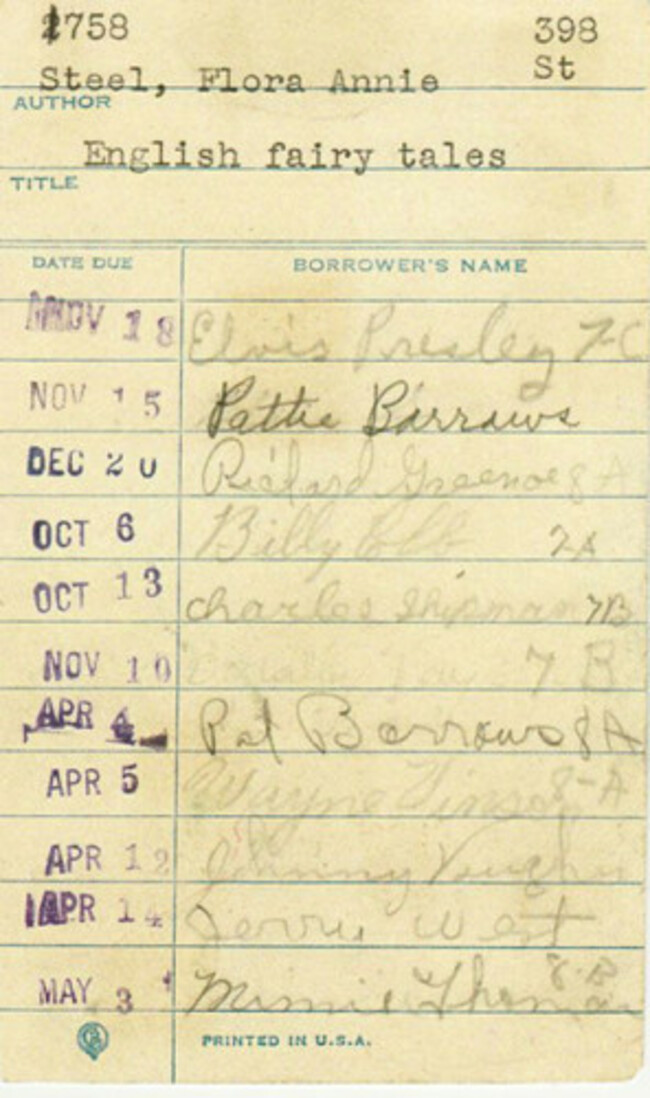 1758 398
Steel, Flora Annie St
AUTHOR
English fairy tales
TITLE
DATE DUE BORROWER'S NAME
NOV 18 Elvis Presley 7-C
NOV 15 Pattie Barrows
DEC 20 Richard Greenoe 8A
OCT 6 Billy
OCT 13 Charles Shipman 7B
NOV 10 7 B
APR 4 Pat Barrows 8A
APR 5 Wayne Vinson 8-A
APR 12 Johnny Vaughn
APR 14 Jerry West
MAY 3 Minnie Thomas 8-B
PRINTED IN U.S.A.